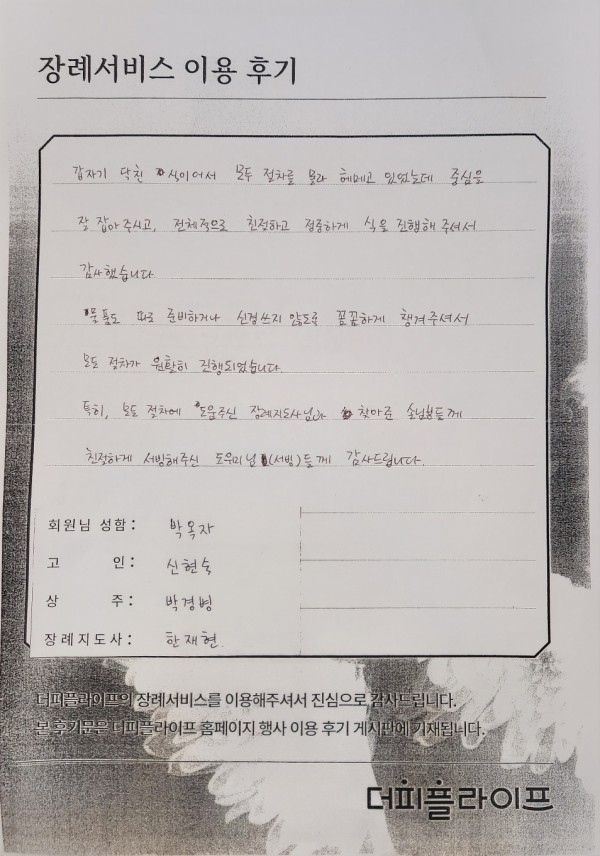 장례서비스 이용 후기
갑자기 닥친 식이어서 모두 절차를 몰라 헤메고 있었는데 중심을
잘 잡아주시고, 전체적으로 친절하고 정중하게 식을 진행해 주셔서
감사했습니다
물품도 따로 준비하거나 신경쓰지 않도록 꼼꼼하게 챙겨주셔서
모든 절차가 원활히 진행되었습니다.
특히, 모든 절차에 도움주신 장례지도사님과 찾아준 손님분들께
친절하게 서빙해주신 도우미님(서빙)들께 감사드립니다.
회원님 성함: 박옥자
고 인: 신현숙
상 주: 박경병
장례지도사: 한재현
더피플라이프의 장례서비스를 이용해주셔서 진심으로 감사드립니다.
본 후기문은 더피플라이프 홈페이지 행사 이용 후기 게시판에 기재됩니다.
더피플라이프